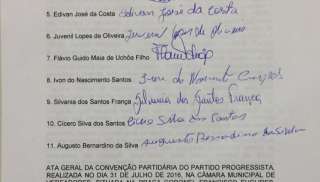 5. Edivan José da Costa Edivan José da Costa
6. Juvenil Lopes de Oliveira Juvenil Lopes de Oliveira
7. Flávio Guido Maia de Uchôa Filho
8. Ivon do Nascimento Santos
9. Silvania dos Santos França Silvania dos Santos França
10. Cícero Silva dos Santos Cicero Silva dos Santos
11. Augusto Bernardino da Silva Augusto Bernardino da Silva
ATA GERAL DA CONVENÇÃO PARTIDÁRIA DO PARTIDO PROGRESSISTA,
REALIZADO NO DIA 31 DE JULHO DE 2016, NA CÂMARA MUNICIPAL DE